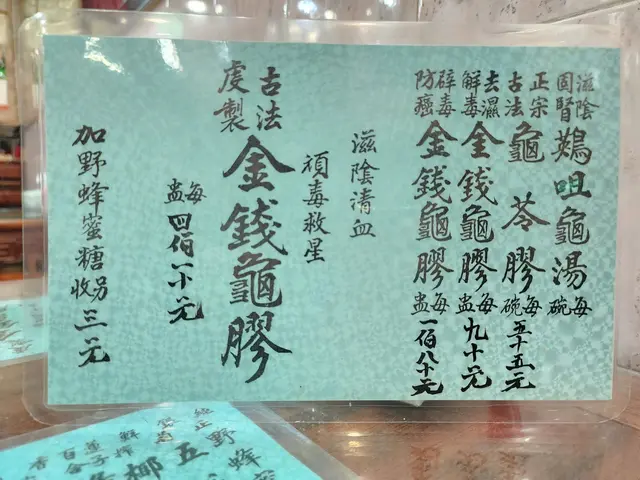 滋陰固腎 咀龜湯 每碗
正宗古法 龜苓膠 每碗五十五元
去濕解毒 金錢龜膠 每盅九十元
辟毒防癌 金錢龜膠 每盅一佰八十元
滋陰清血
頑毒救星
古法虔製 金錢龜膠
每盅四佰八十元
加野蜂蜜糖另收三元
野蜂
五
鮮
椰
百合